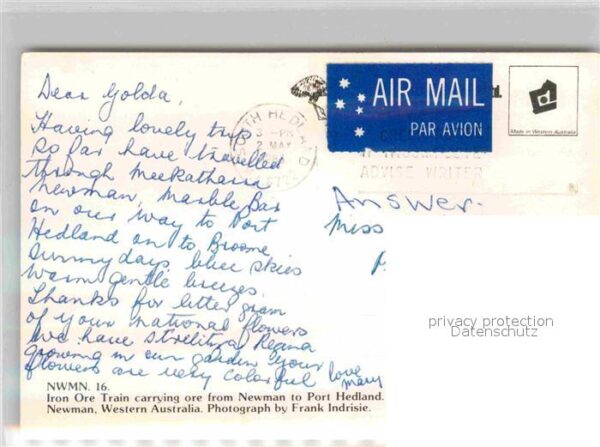 Dear Golda,
Having lovely trip
so far have travelled
through Meekatharra
Newman, Marble Bar
on our way to Port
Hedland on to Broome
Sunny days blue skies
warm gentle breezes.
Thanks for letter gram
of your national flowers
We have Strelitza Regina
growing in our garden your
flowers are very colorful love
Mary
NWMN. 16.
Iron Ore Train carrying ore from Newman to Port Hedland.
Newman, Western Australia. Photograph by Frank Indrisie.
AIR MAIL
PAR AVION
Made in Western Australia
SOUTH HEDLAND
3 -PM
2 MAY
ADVISE WRITER
Answer.
Miss
privacy protection
Datenschutz